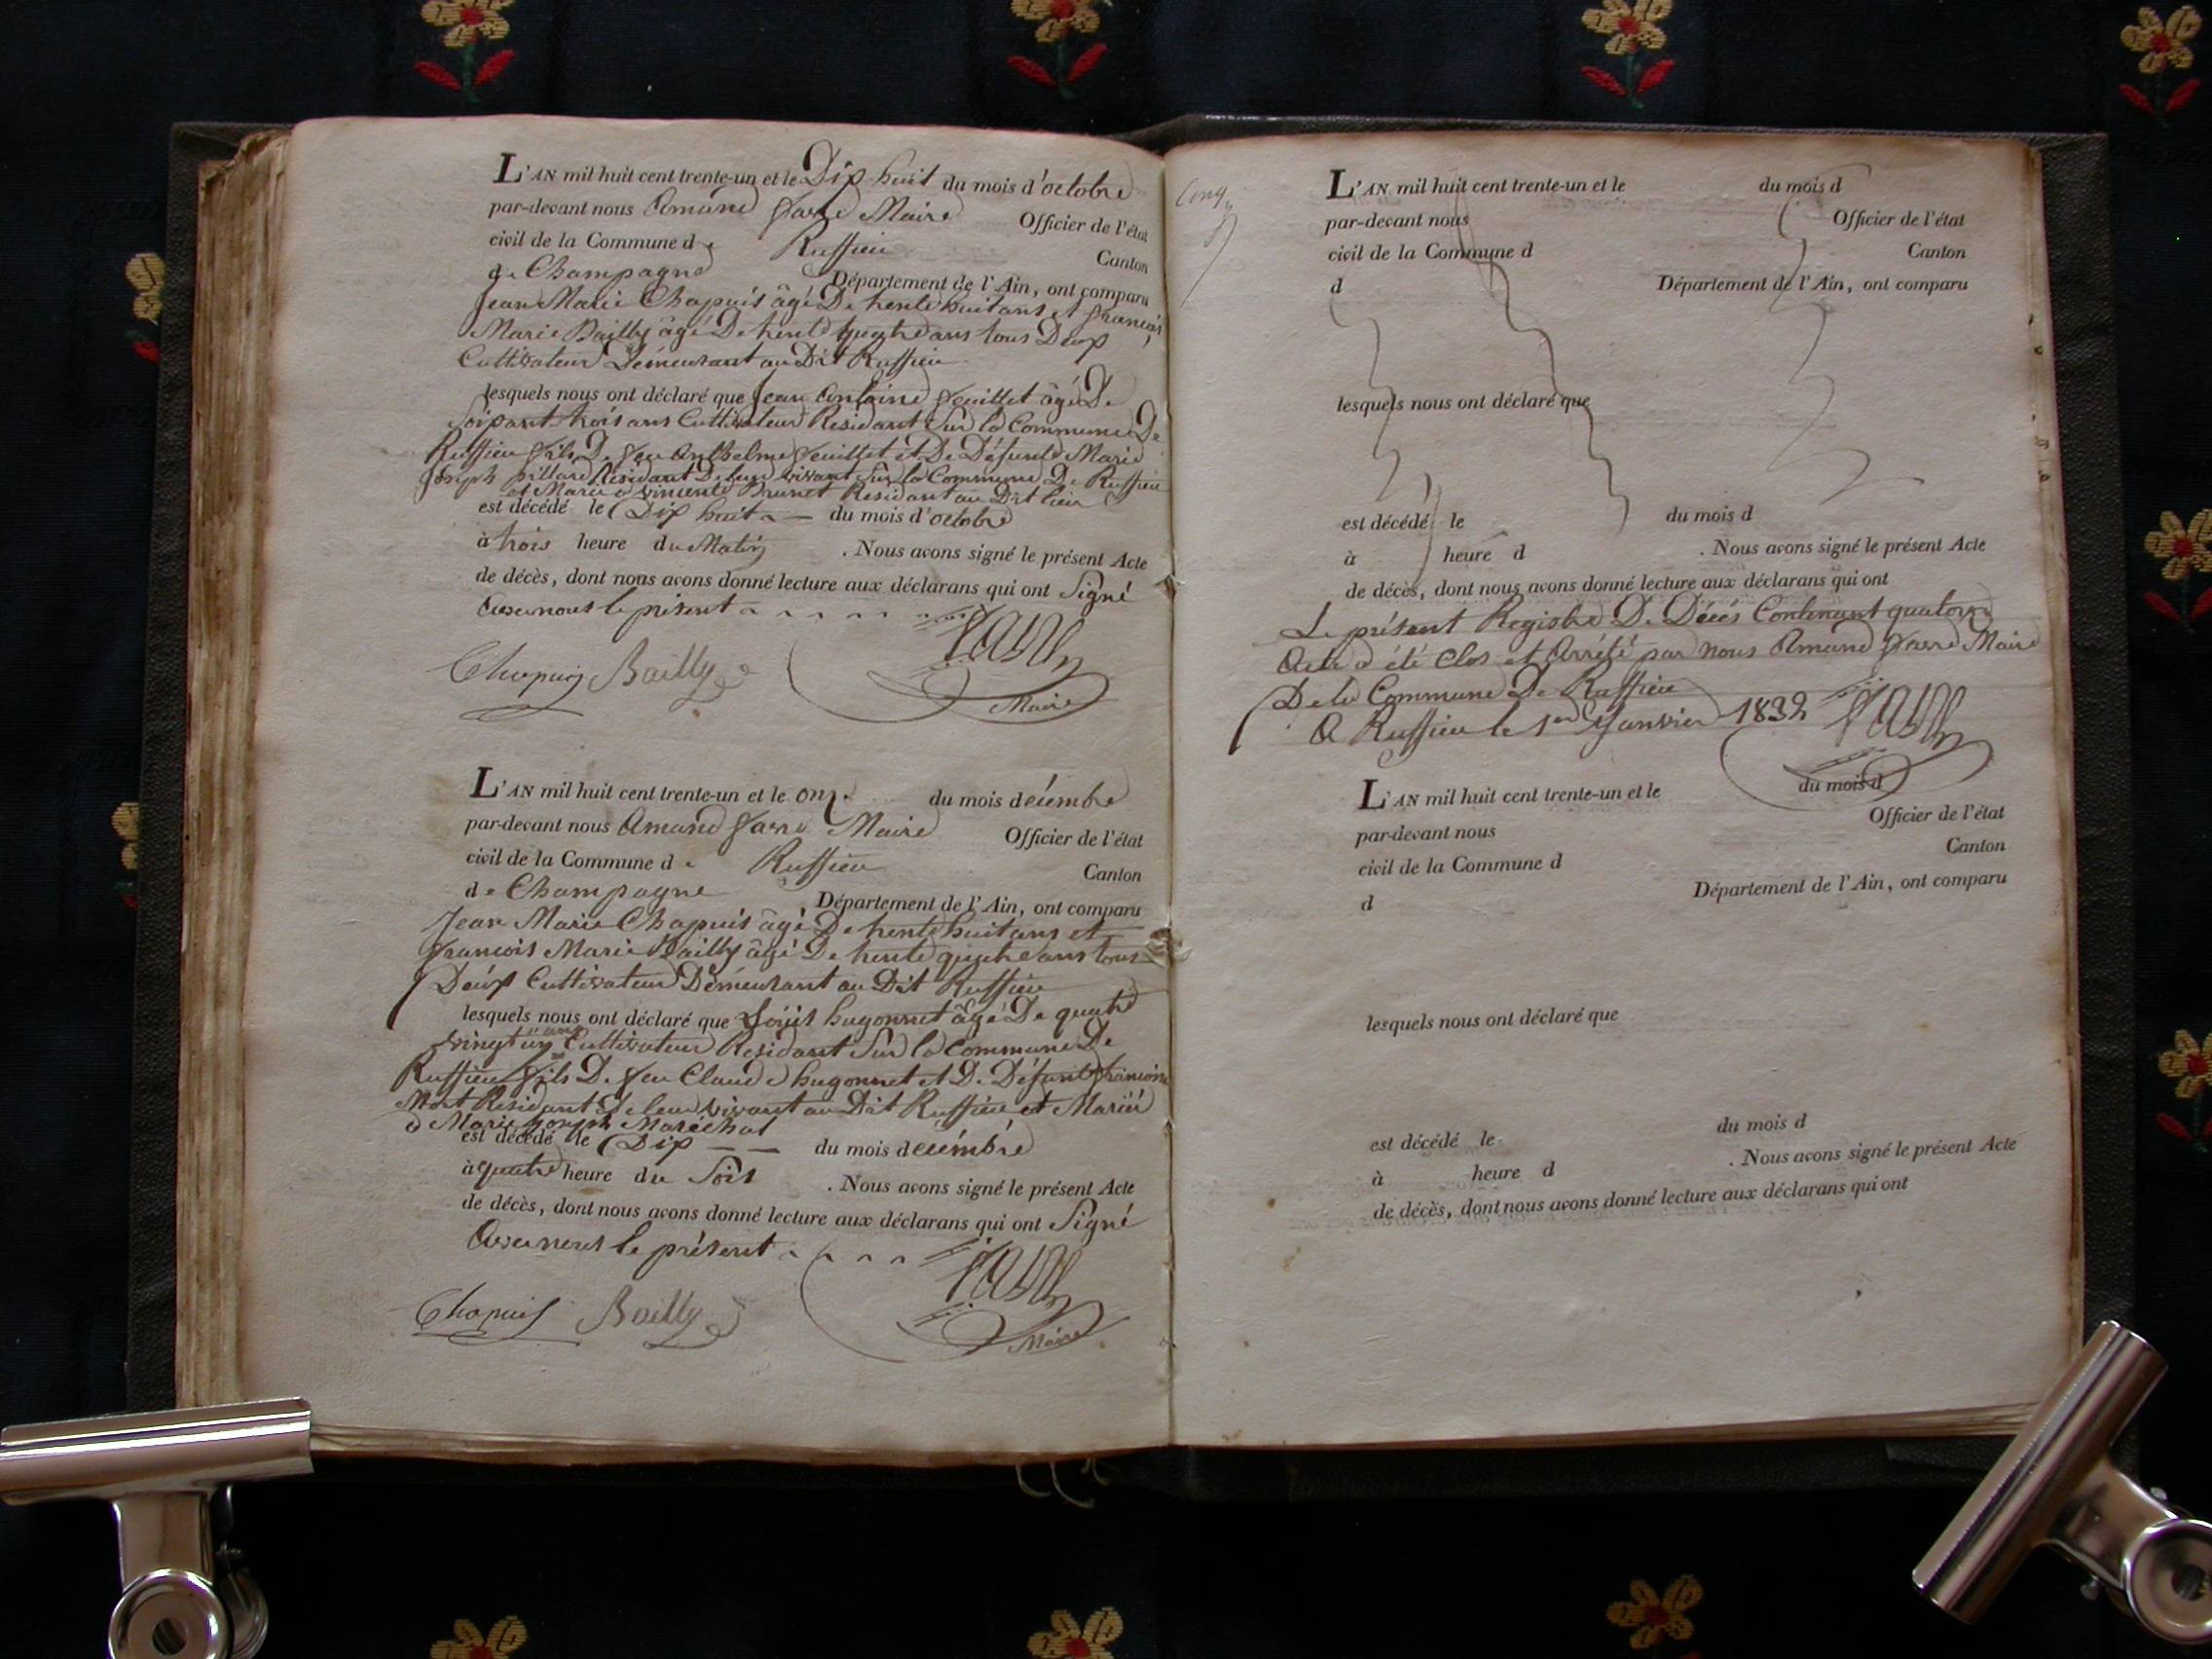 L'AN mil huit cent trente-un et le Dix huit du mois d'octobre
par-devant nous Amand favre Maire Officier de l'état
civil de la Commune de Ruffieu Canton
de Champagne Département de l'Ain, ont comparu
Jean Marie Chapuis âgé De trente huit ans et francois
Marie Bailly âgé De trente quatre ans tous Deux
Cultivateur Demeurant au Dit Ruffieu
lesquels nous ont déclaré que Jean Antoine feuillet âgé De
Soixant trois ans Cultivateur Residant Sur la Commune De
Ruffieu fils De feu Anthelme feuillet et De Défunte Marie
Joseph pillard Residant De leur vivant Sur la Commune De Ruffieu
et Marie a vincente Brunet Residant au Dit lieu
est décédé le Dix huit du mois d'octobre
à trois heure du Matin . Nous avons signé le présent Acte
de décès, dont nous avons donné lecture aux déclarans qui ont Signé
Avec nous le présent
Chapuis Bailly favre
Maire
L'AN mil huit cent trente-un et le onze du mois décémbre
par-devant nous Amand favre Maire Officier de l'état
civil de la Commune de Ruffieu Canton
de Champagne Département de l'Ain, ont comparu
Jean Marie Chapuis âgé De trente huit ans et
francois Marie Bailly âgé De trente quatre ans tous
Deux Cultivateur Démeurant au Dit Ruffieu
lesquels nous ont déclaré que Loüis hugonnet âgé De quatre
vingt un ans Cultivateur Residant Sur la Commune De
Ruffieu fils De feu Claude hugonnet et De Défunte francoise
Residant De leur vivant au Dit Ruffieu et Marié
a Marie Joseph Maréchal
est décédé le Dix du mois décémbre
à quatre heure du Soir . Nous avons signé le présent Acte
de décès, dont nous avons donné lecture aux déclarans qui ont Signé
Avec nous le présent
Chapuis Bailly favre
Maire
L'AN mil huit cent trente-un et le du mois d
par-devant nous Officier de l'état
civil de la Commune d Canton
d Département de l'Ain, ont comparu
lesquels nous ont déclaré que
est décédé le du mois d
à heure d . Nous avons signé le présent Acte
de décès, dont nous avons donné lecture aux déclarans qui ont
Le présent Registre De Décès Contenant quatorze
Acte a été Clos et Arrété par nous Amand favre Maire
De la Commune De Ruffieu
A Ruffieu le 1er Janvier 1832 favre
L'AN mil huit cent trente-un et le du mois d
par-devant nous Officier de l'état
civil de la Commune d Canton
d Département de l'Ain, ont comparu
lesquels nous ont déclaré que
est décédé le du mois d
à heure d . Nous avons signé le présent Acte
de décès, dont nous avons donné lecture aux déclarans qui ont